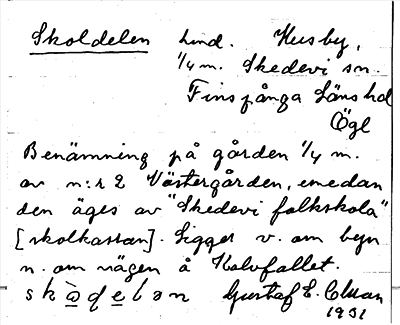 Skoldelen hmd. Husby,
1/4 m. Skedevi sn.
Finspånga Länshd
Ögl
Benämning på gården 1/4 m.
av n:r 2 Västergården, emedan
den äges av "Skedevi folkskola"
[skolkassan]. Ligger v. om byn
n. om vägen å Kalvfallet.
skòḍelən Gustaf E. Clman
1931